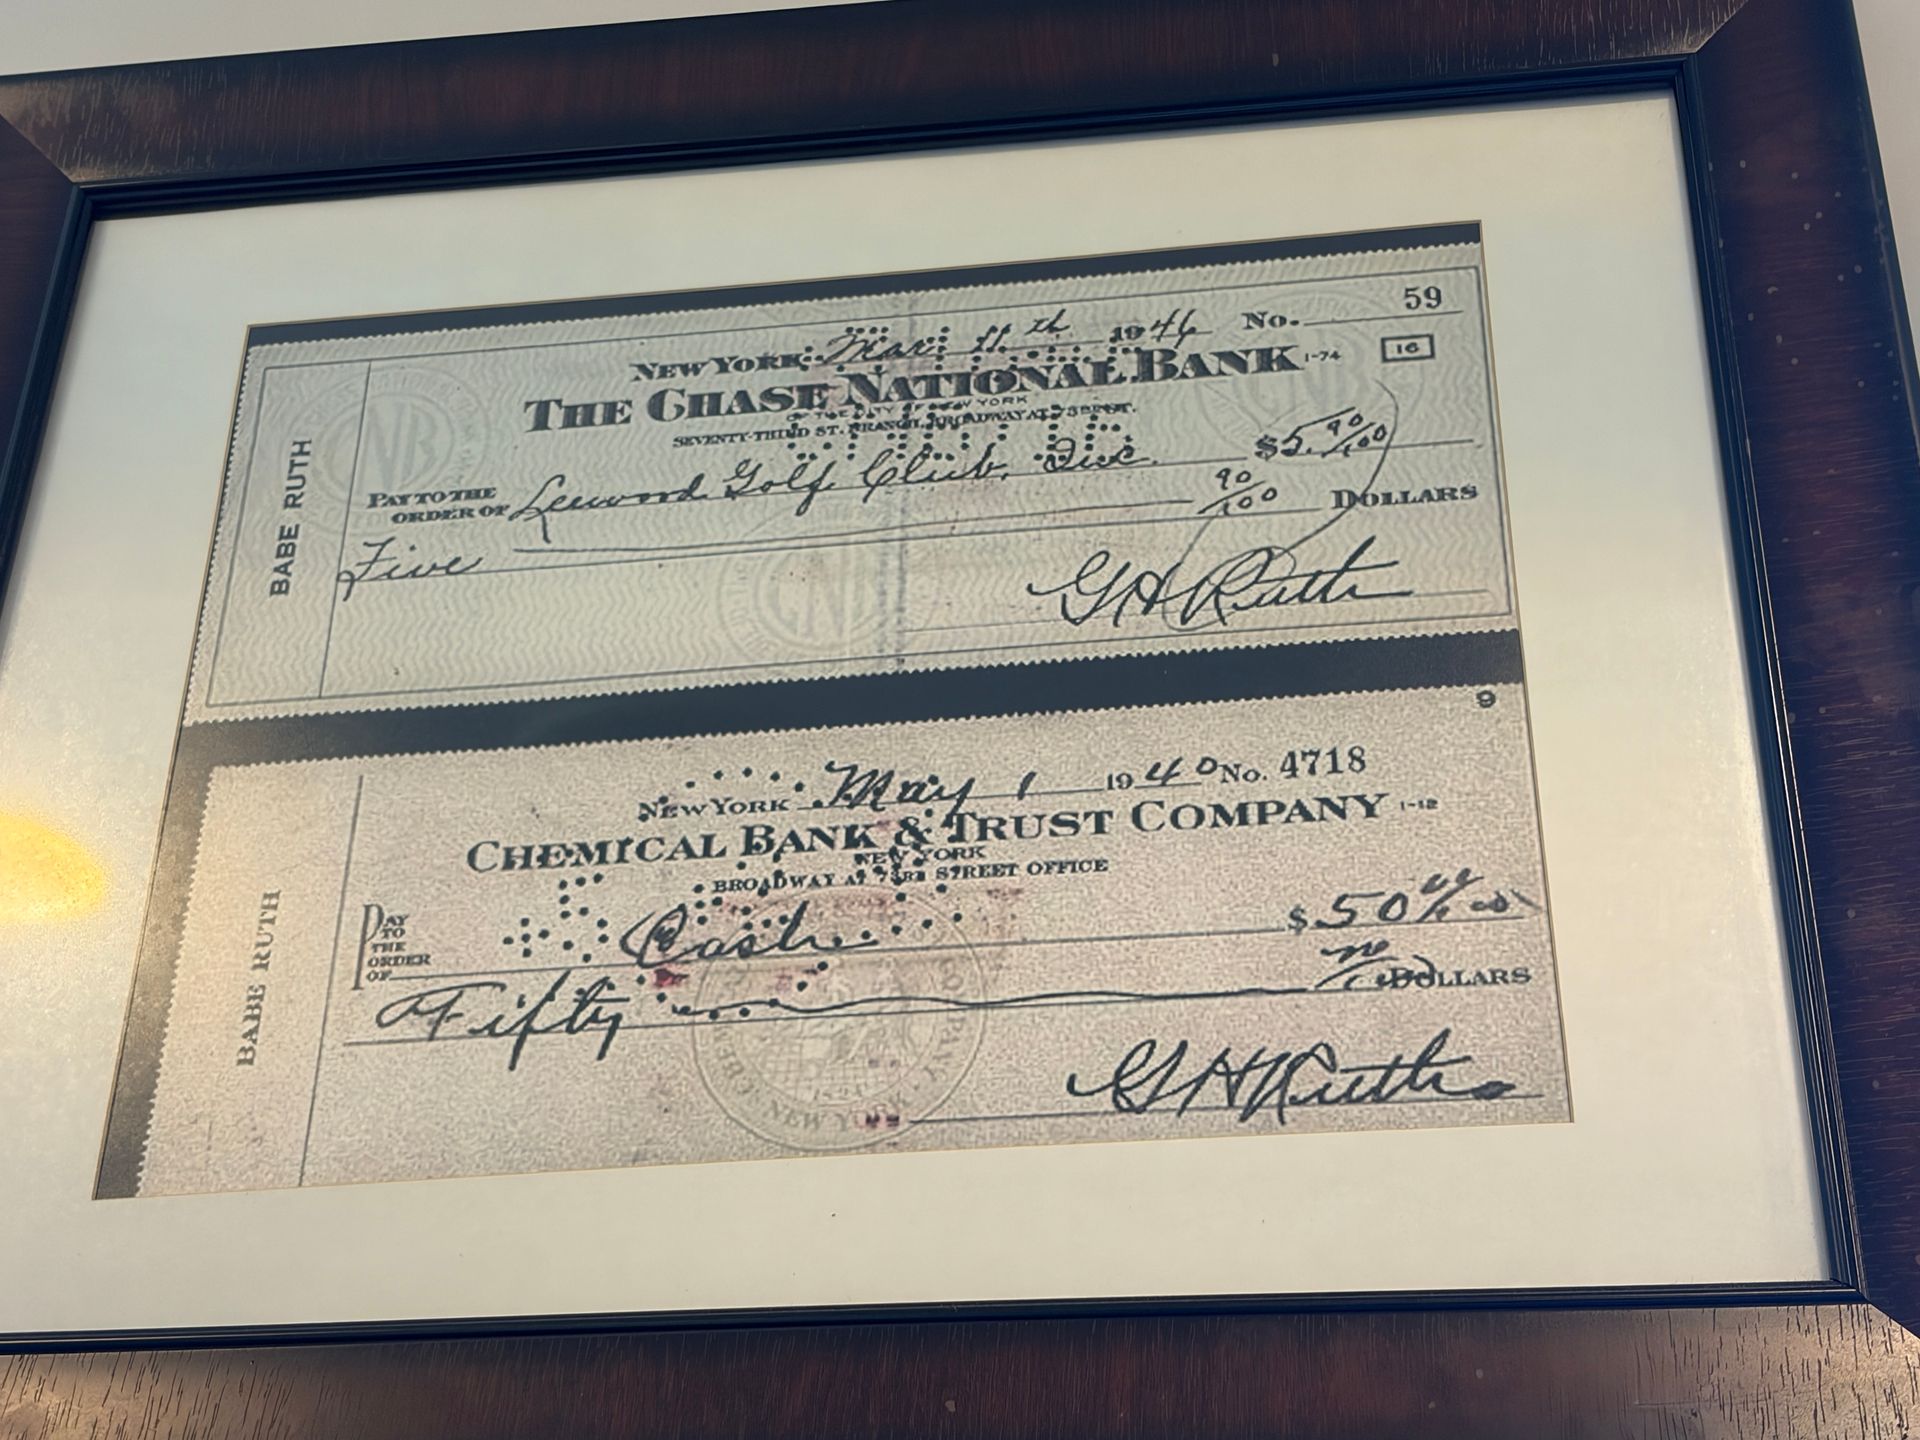 BABE RUTH
NEW YORK, Mar. 11th 1946 No. 59
THE CHASE NATIONAL BANK 1-74 16
OF THE CITY OF NEW YORK
SEVENTY-THIRD ST. BRANCH, BROADWAY AT 73RD ST.
PAY TO THE ORDER OF Leewood Golf Club, Inc. $5.90/100
Five 90/100 DOLLARS
G H Ruth
9
BABE RUTH
NEW YORK May 1 1940 No. 4718
CHEMICAL BANK & TRUST COMPANY 1-12
NEW YORK
BROADWAY AT 73RD STREET OFFICE
PAY TO THE ORDER OF Cash $50
Fifty no DOLLARS
G H Ruth
NEW YORK